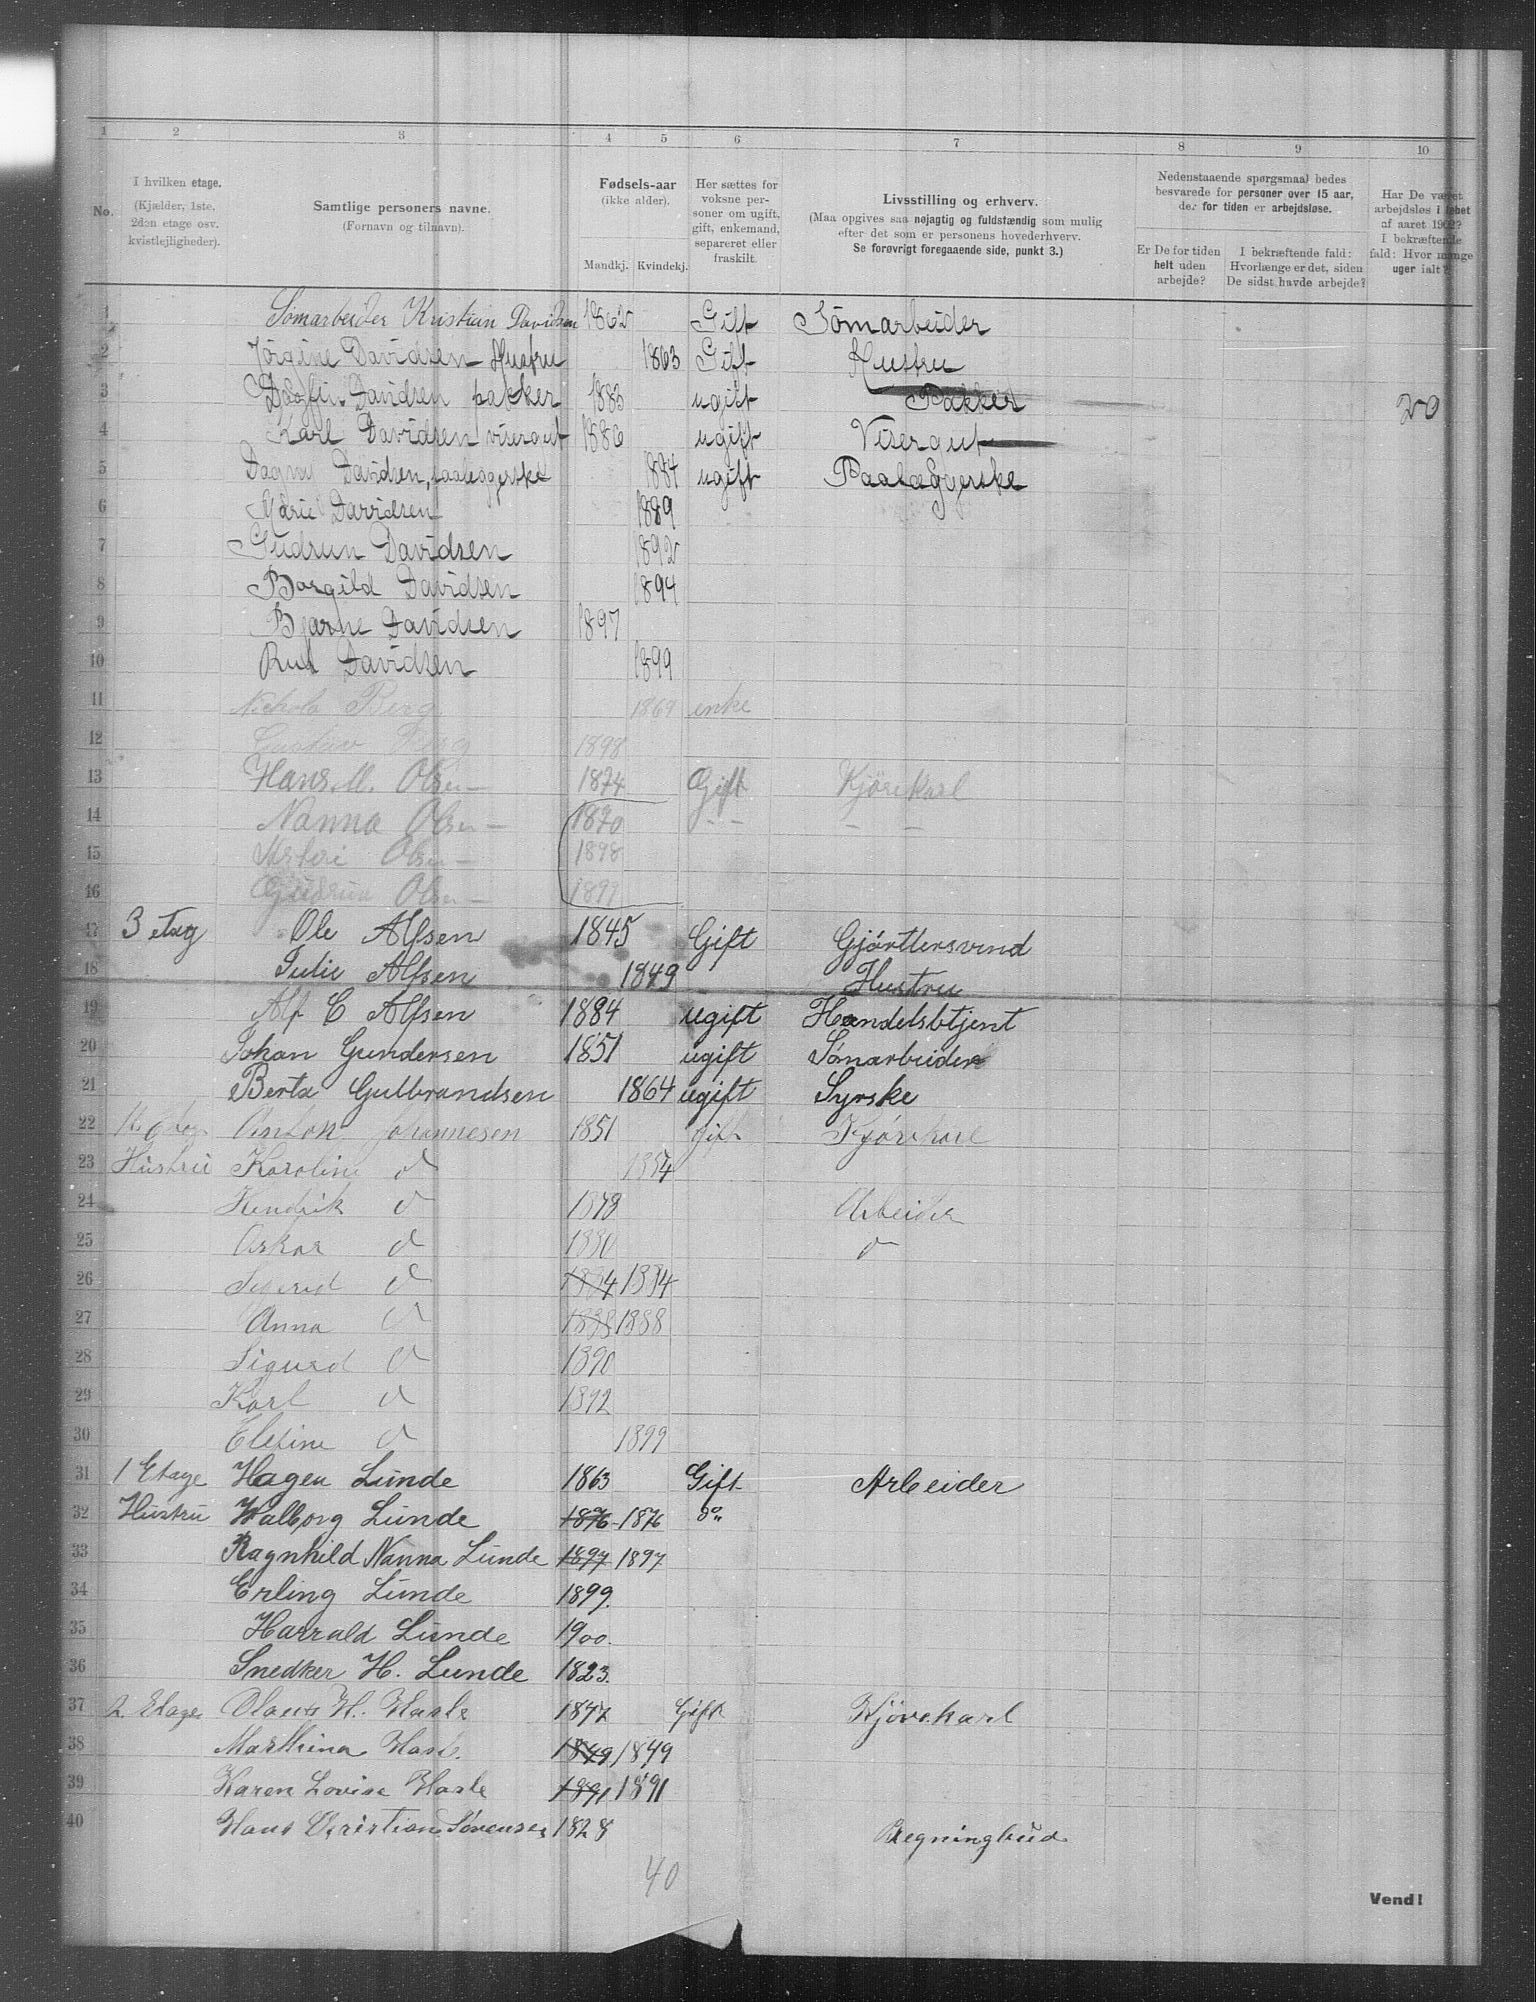 1 2 3 4 5 6 7 8 9 10
No.
I hvilken etage.
(Kjælder, 1ste,
2den etage osv.
kvistlejligheder).
Samtlige personers navne.
(Fornavn og tilnavn).
Fødsels-aar
(ikke alder).
Mandkj. Kvindekj.
Her sættes for
voksne per-
soner om ugift,
gift, enkemand,
separeret eller
fraskilt.
Livsstilling og erhverv.
(Maa opgives saa nøjagtig og fuldstændig som mulig
efter det som er personens hovederhverv.
Se forøvrigt foregaaende side, punkt 3.)
Nedenstaaende spørgsmaal bedes
besvarede for personer over 15 aar,
der for tiden er arbejdsløse.
Er De for tiden
helt uden
arbejde?
I bekræftende fald:
Hvorlænge er det, siden
De sidst havde arbejde?
Har De været
arbejdsløs i løbet
af aaret 1902?
I bekræftende
fald: Hvor mange
uger ialt?
1 Sömarbeider Kristian Davidsen 1862 Gift Sömarbeider
2 Jörgine Davidsen Hustru 1863 Gift Hustru
3 Davidsen pakker 1883 ugift Pakker 20
4 Karl Davidsen visergut 1886 ugift Visergut
5 Dagny Davidsen, paaleggerske 1884 ugift Paalæggerske
6 Marie Davidsen 1889
7 Gudrun Davidsen 1892
8 Borgild Davidsen 1894
9 Bjarne Davidsen 1897
10 Rut Davidsen 1899
11 Berg 1869 enke
12 Gustav Berg 1898
13 Hans M. Olsen 1874 Gift Kjörekarl
14 Nanna Olsen 1870 - - - -
15 Olsen 1898
16 Gudrun Olsen 1897
17 3 etag Ole Alfsen 1845 Gift Gjörtlersvend
18 Julie Alfsen 1849 Hustru
19 Alf C Alfsen 1884 ugift Handelsbtjent
20 Johan Gundersen 1851 ugift Sömarbeider
21 Berta Gulbrandsen 1864 ugift Syrske
22 Anton Johannesen 1851 Gift Kjörekarl
23 Hustru Karoline d 1854
24 Hendrik d 1878 Arbeider
25 Oskar d 1880 d
26 Sigrid d 1884 1884
27 Anna d 1888 1888
28 Sigurd d 1890
29 Karl d 1892
30 Elefine d 1899
31 1 Etage Hagen Lunde 1863 Gift Arbeider
32 Hustru Walborg Lunde 1876 - 1876 do"
33 Ragnhild Nanna Lunde 1897 1897
34 Erling Lunde 1899.
35 Harrald Lunde 1900.
36 Snedker H. Lunde 1823.
37 2. Etage Olaus H. Hasle 1847 Gift Kjörekarl
38 Marthina Hasle 1849 1849
39 Karen Lovise Hasle 1891 1891
40 Hans Christian Sörensen 1828 Regningbud
40
Vend!